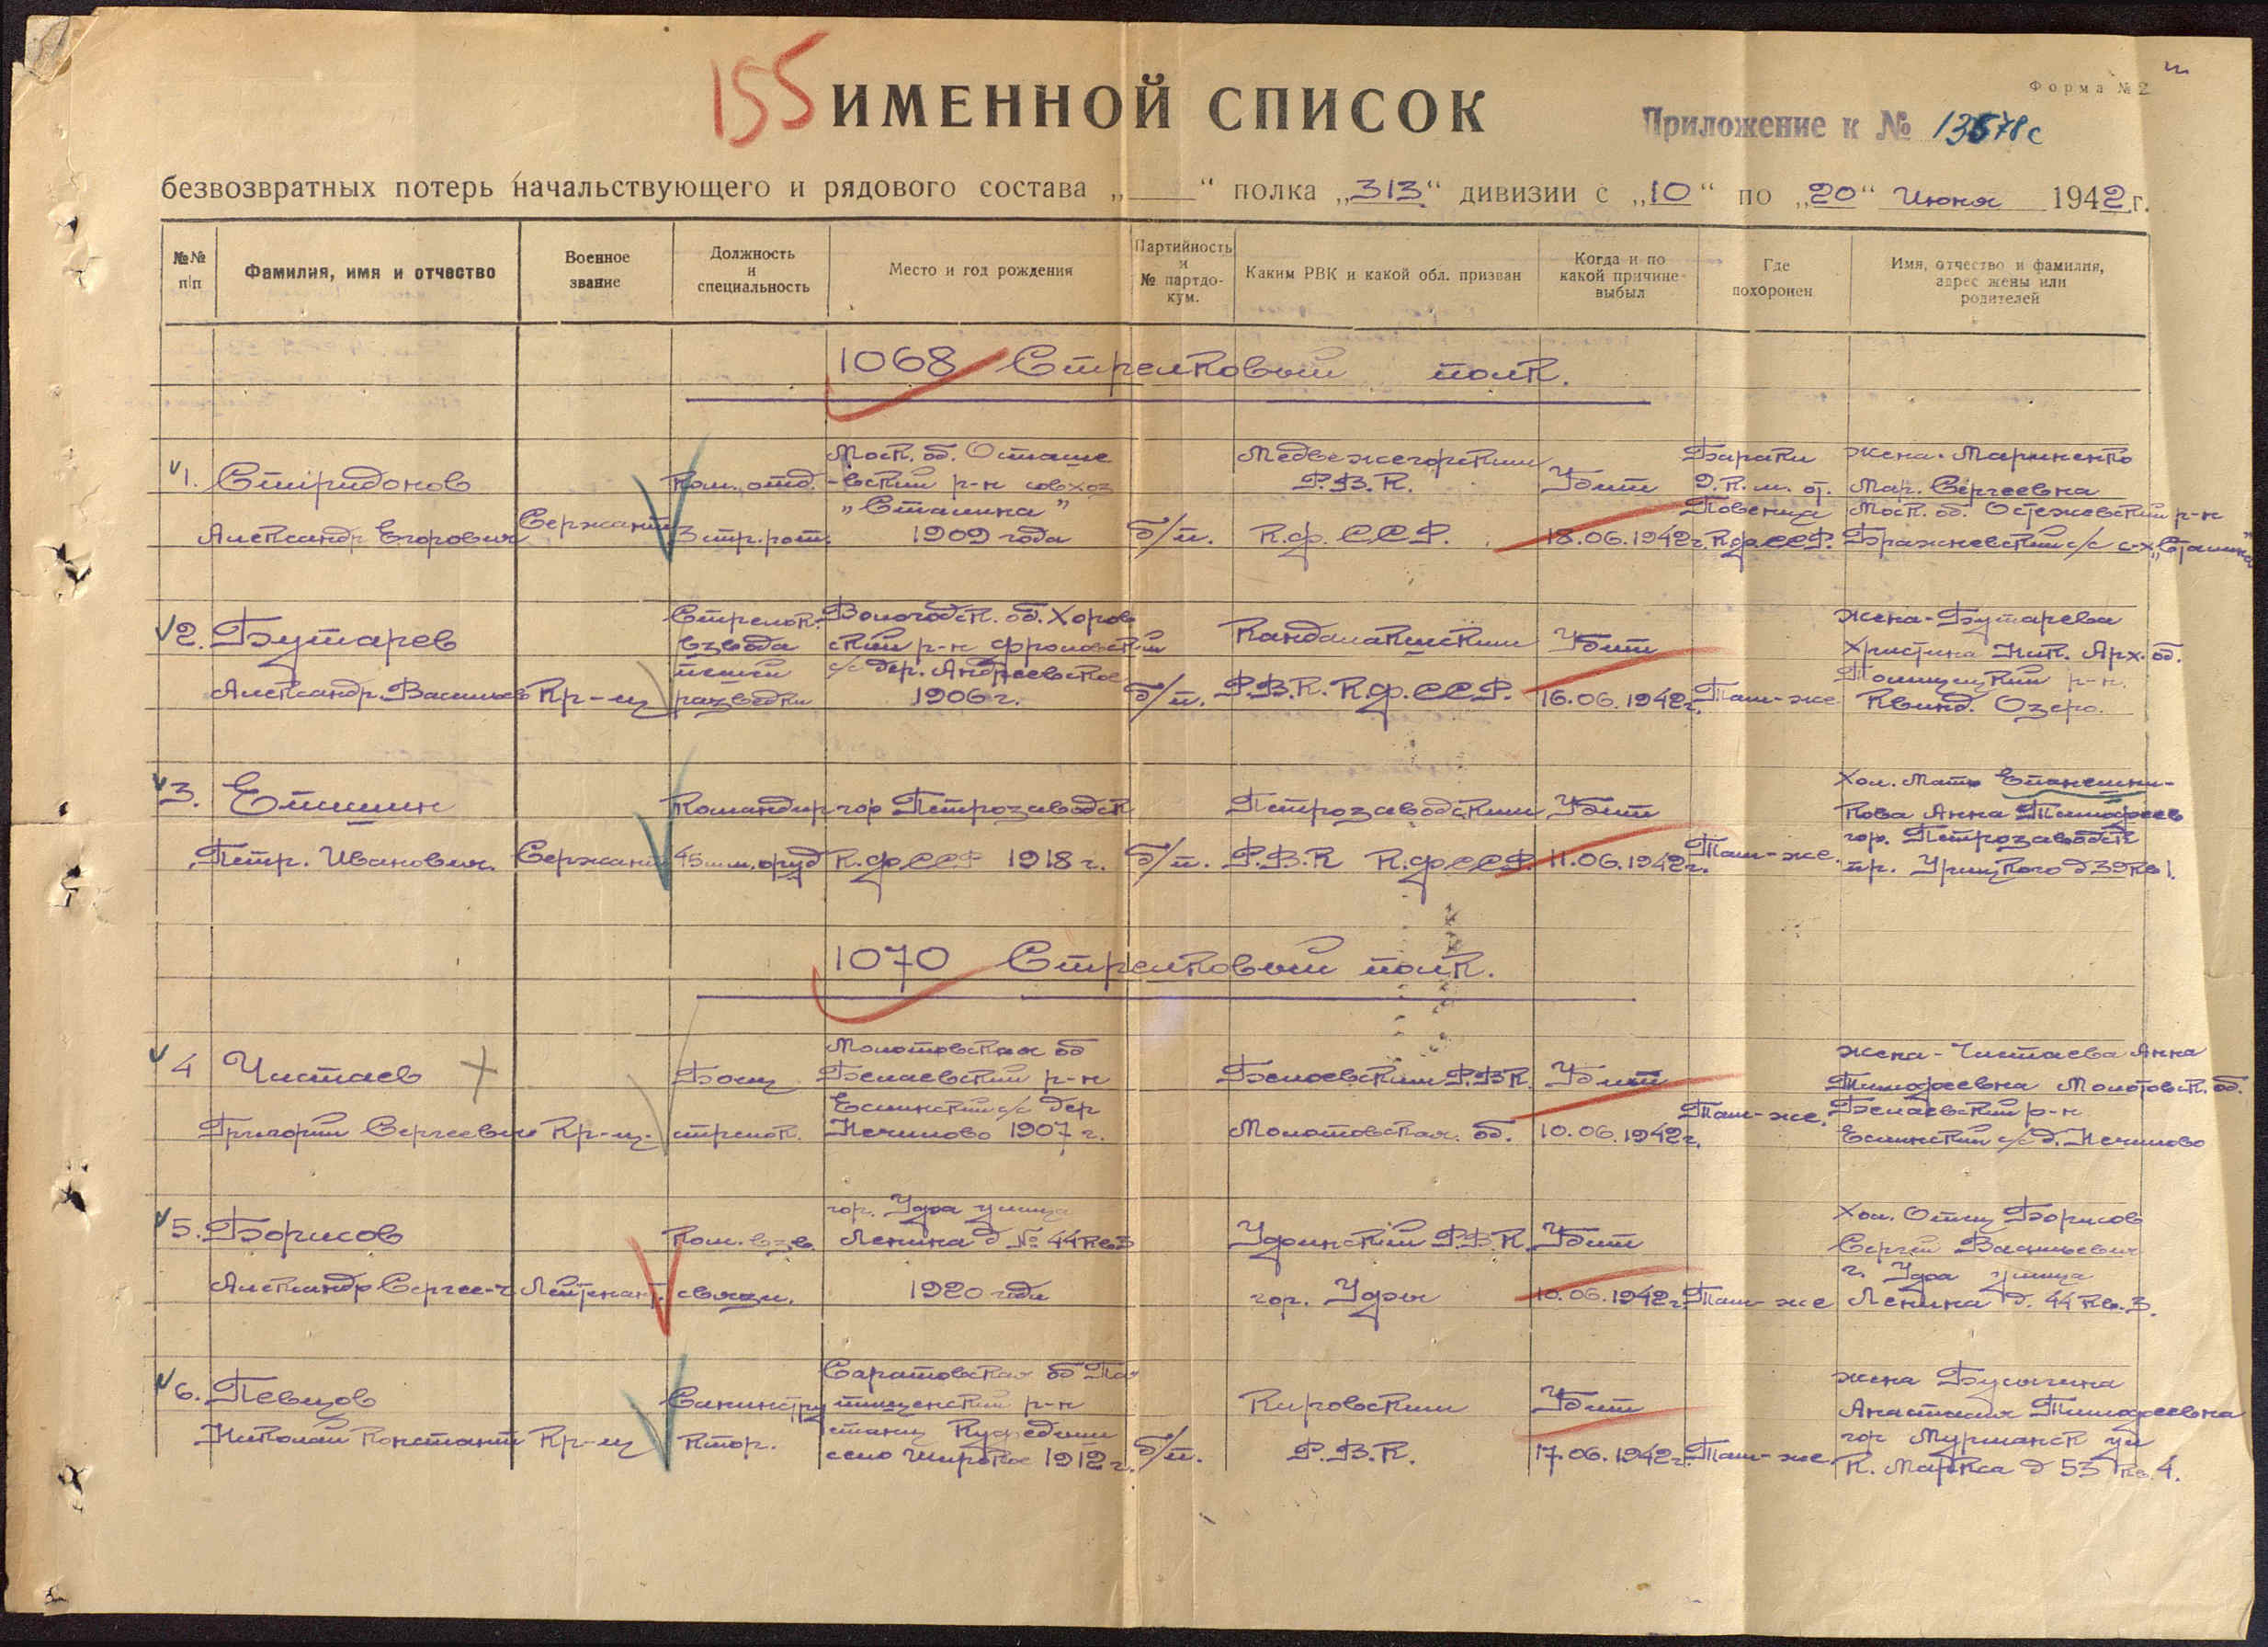 155 ИМЕННОЙ СПИСОК
Форма № 2
Приложение к № 13578с
безвозвратных потерь начальствующего и рядового состава „ “ полка „313“ дивизии с „10“ по „20“ Июня 1942 г.
№№ п/п
Фамилия, имя и отчество
Военное звание
Должность и специальность
Место и год рождения
Партийность и № партдокум.
Каким РВК и какой обл. призван
Когда и по какой причине выбыл
Где похоронен
Имя, отчество и фамилия, адрес жены или родителей
1068 Стрелковый полк.
1. Спиридонов
Александр Егорович
Сержант
Ком. отд.
3 стр. рот.
Моск. об. Осташе
-вский р-н совхоз
„Сталина”
1909 года
б/п.
Медвежегорский
Р.В.К.
К.ф. ССР.
Убит
18.06.1942г.
Бараки
О.К.м. от.
Повенца
К.ф.ССР.
Жена. Мариненко
Мар. Сергеевна
Моск. об. Остежевский р-н
Бражневский с/с с-х „Сталина”
2. Бутарев
Александр. Васильев
Кр-ец
Стрелок.
взвода
пешей
разведки
Вологодск. об. Хоров
ский р-н Фроловский
с/с дер. Андреевское
1906 г.
б/п.
Кандалакшский
Р.В.К. К.ф.ССР.
Убит
16.06.1942г.
Там-же
Жена-Бутарева
Христина Ник. Арх. об.
р-н.
Квинд. Озеро.
3. Епишин
Петр. Иванович.
Сержант
Командир
45 мм. оруд
гор Петрозаводск
К.ф.ССР 1918 г.
б/п.
Петрозаводский
Р.В.К К.ф.ССР.
Убит
11.06.1942г.
Там-же.
Хол. Мать Епанешни-
кова Анна Тимофеев
гор. Петрозаводск
пр. Урицкого д 39 кв 1.
1070 Стрелковый полк.
4 Чистаев
Григорий Сергеевич
Кр-ец.
Боец
стрелок.
Молотовская об
Белаевский р-н
Есинский с/с дер
Нечилово 1907 г.
Белоевский Р.В.К.
Молотовская. об.
Убит
10.06.1942г.
Там-же.
Жена-Чистаева Анна
Тимофеевна Молотовск. об.
Белаевский р-н
Есинский с/с д. Нечилово
5. Борисов
Александр Сергее-ч
Лейтенант.
Ком. взв.
связи.
гор. Уфа улица
Ленина д № 44 кв 3
1920 года
Уфинский Р.В.К.
гор. Уфы
Убит
10.06.1942г.
Там-же
Хол. Отец Борисов
Сергей Васильевич
г. Уфа улица
Ленина д. 44 кв. 3.
6. Певцов
Николай Констант
Кр-ец
Санинстру
ктор.
Саратовская об
р-н
село Широкое 1912 г.
б/п.
Кировский
Р.В.К.
Убит
17.06.1942г.
Там-же.
Жена Бусыгина
Анастасия Тимофеевна
гор Мурманск ул
К. Маркса д 53 кв. 4.